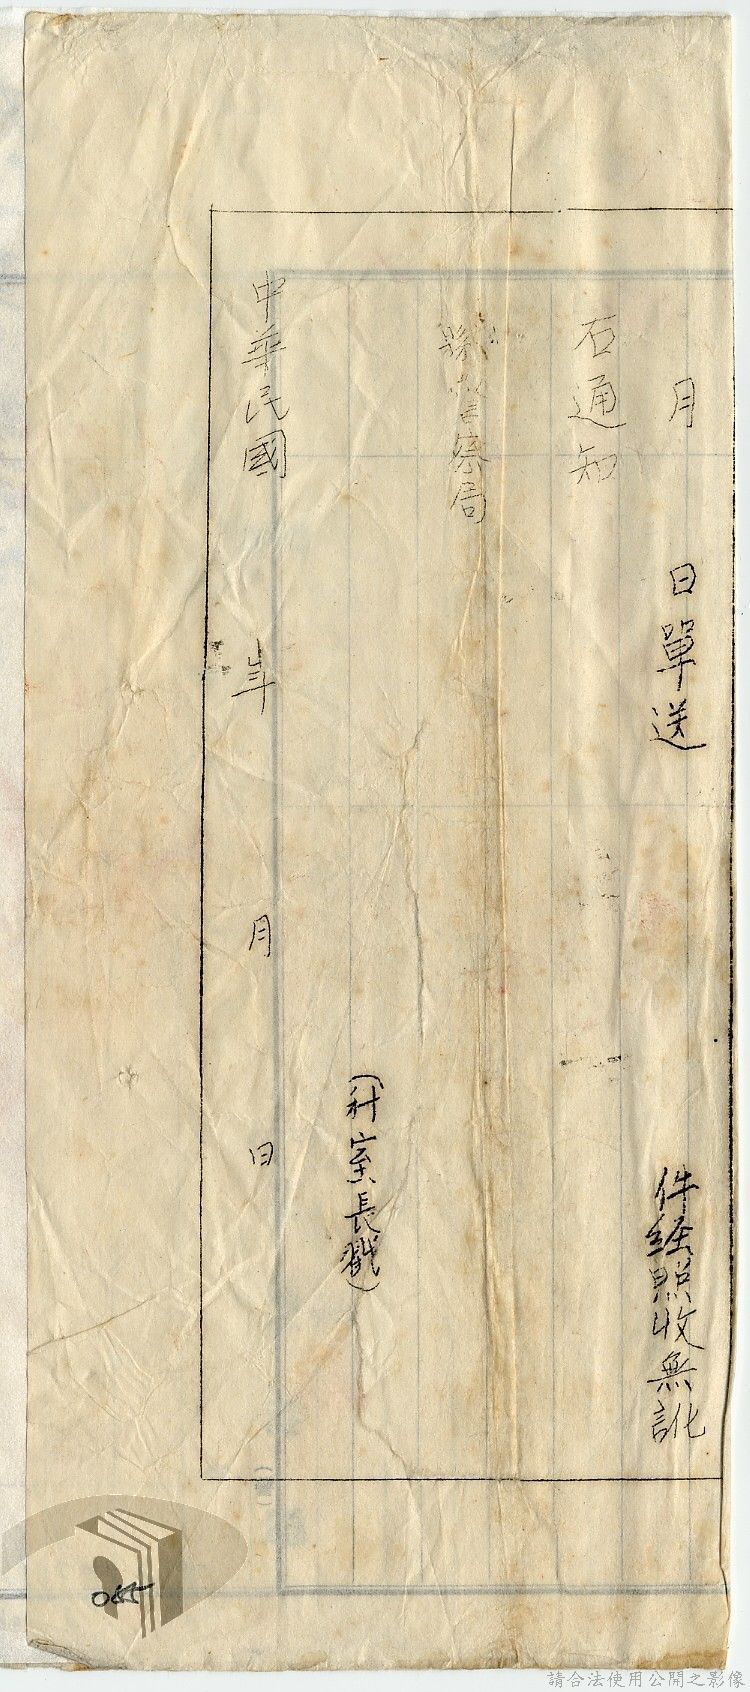 月 日單送 件經照收無訛
右通知
縣警察局
(科室長戳)
中華民國 年 月 日
055
請合法使用公開之影像